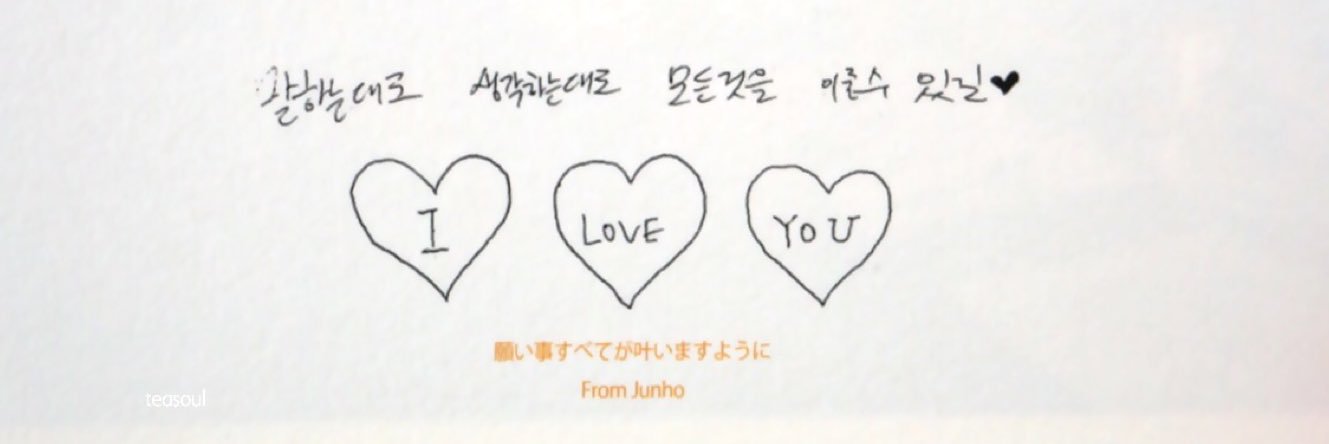 말하는대로 생각하는대로 모든것을 이룰수 있길♥
I LOVE YOU
願い事すべてが叶いますように
From Junho
teasoul